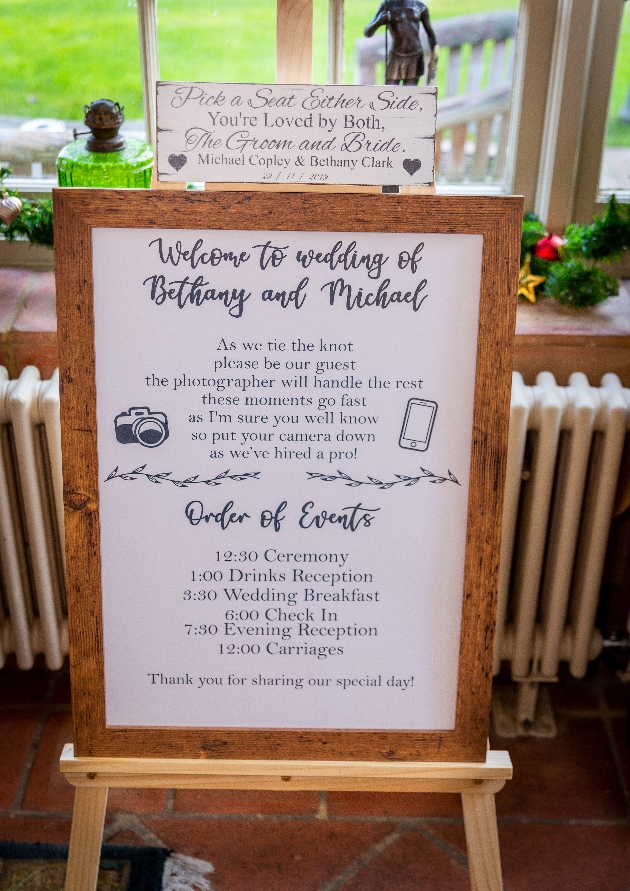 Pick a Seat Either Side,
You're Loved by Both,
The Groom and Bride.
Michael Copley & Bethany Clark
22 / 11 / 2019
Welcome to wedding of
Bethany and Michael
As we tie the knot
please be our guest
the photographer will handle the rest
these moments go fast
as I'm sure you well know
so put your camera down
as we've hired a pro!
Order of Events
12:30 Ceremony
1:00 Drinks Reception
3:30 Wedding Breakfast
6:00 Check In
7:30 Evening Reception
12:00 Carriages
Thank you for sharing our special day!